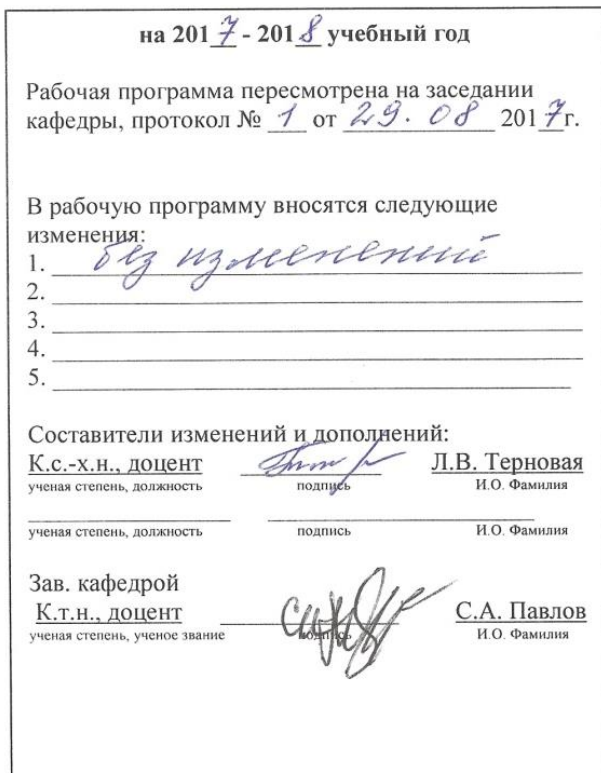 на 2017 - 2018 учебный год
Рабочая программа пересмотрена на заседании
кафедры, протокол № 1 от 29.08 2017г.
В рабочую программу вносятся следующие
изменения:
1. без изменений
2.
3.
4.
5.
Составители изменений и дополнений:
К.с.-х.н., доцент Л.В. Терновая
ученая степень, должность подпись И.О. Фамилия
ученая степень, должность подпись И.О. Фамилия
Зав. кафедрой
К.т.н., доцент С.А. Павлов
ученая степень, ученое звание подпись И.О. Фамилия